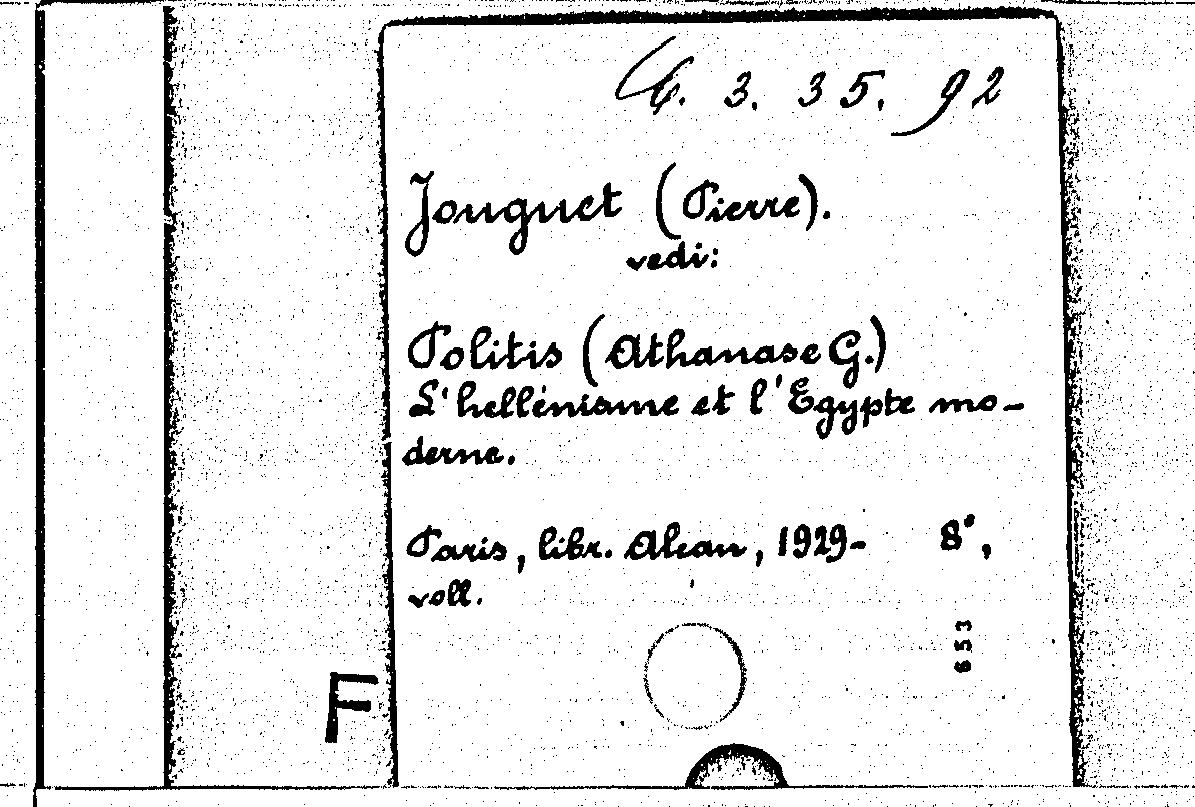 6. 3. 35. 92
Jouguet (Pierre).
vedi:
Politis (Athanase G.)
L'hellénisme et l'Egypte mo-
derne.
Paris, libr. Alcan, 1929- 8°,
voll.
653
F